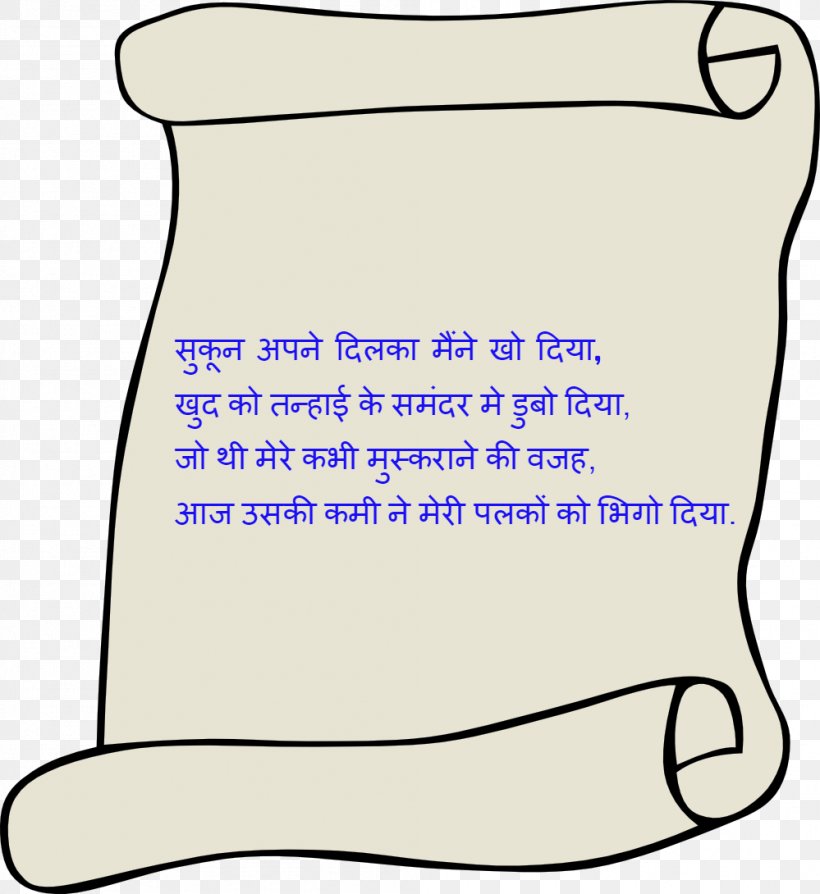 सुकून अपने दिलका मैंने खो दिया,
खुद को तन्हाई के समंदर मे डुबो दिया,
जो थी मेरे कभी मुस्कराने की वजह,
आज उसकी कमी ने मेरी पलकों को भिगो दिया.